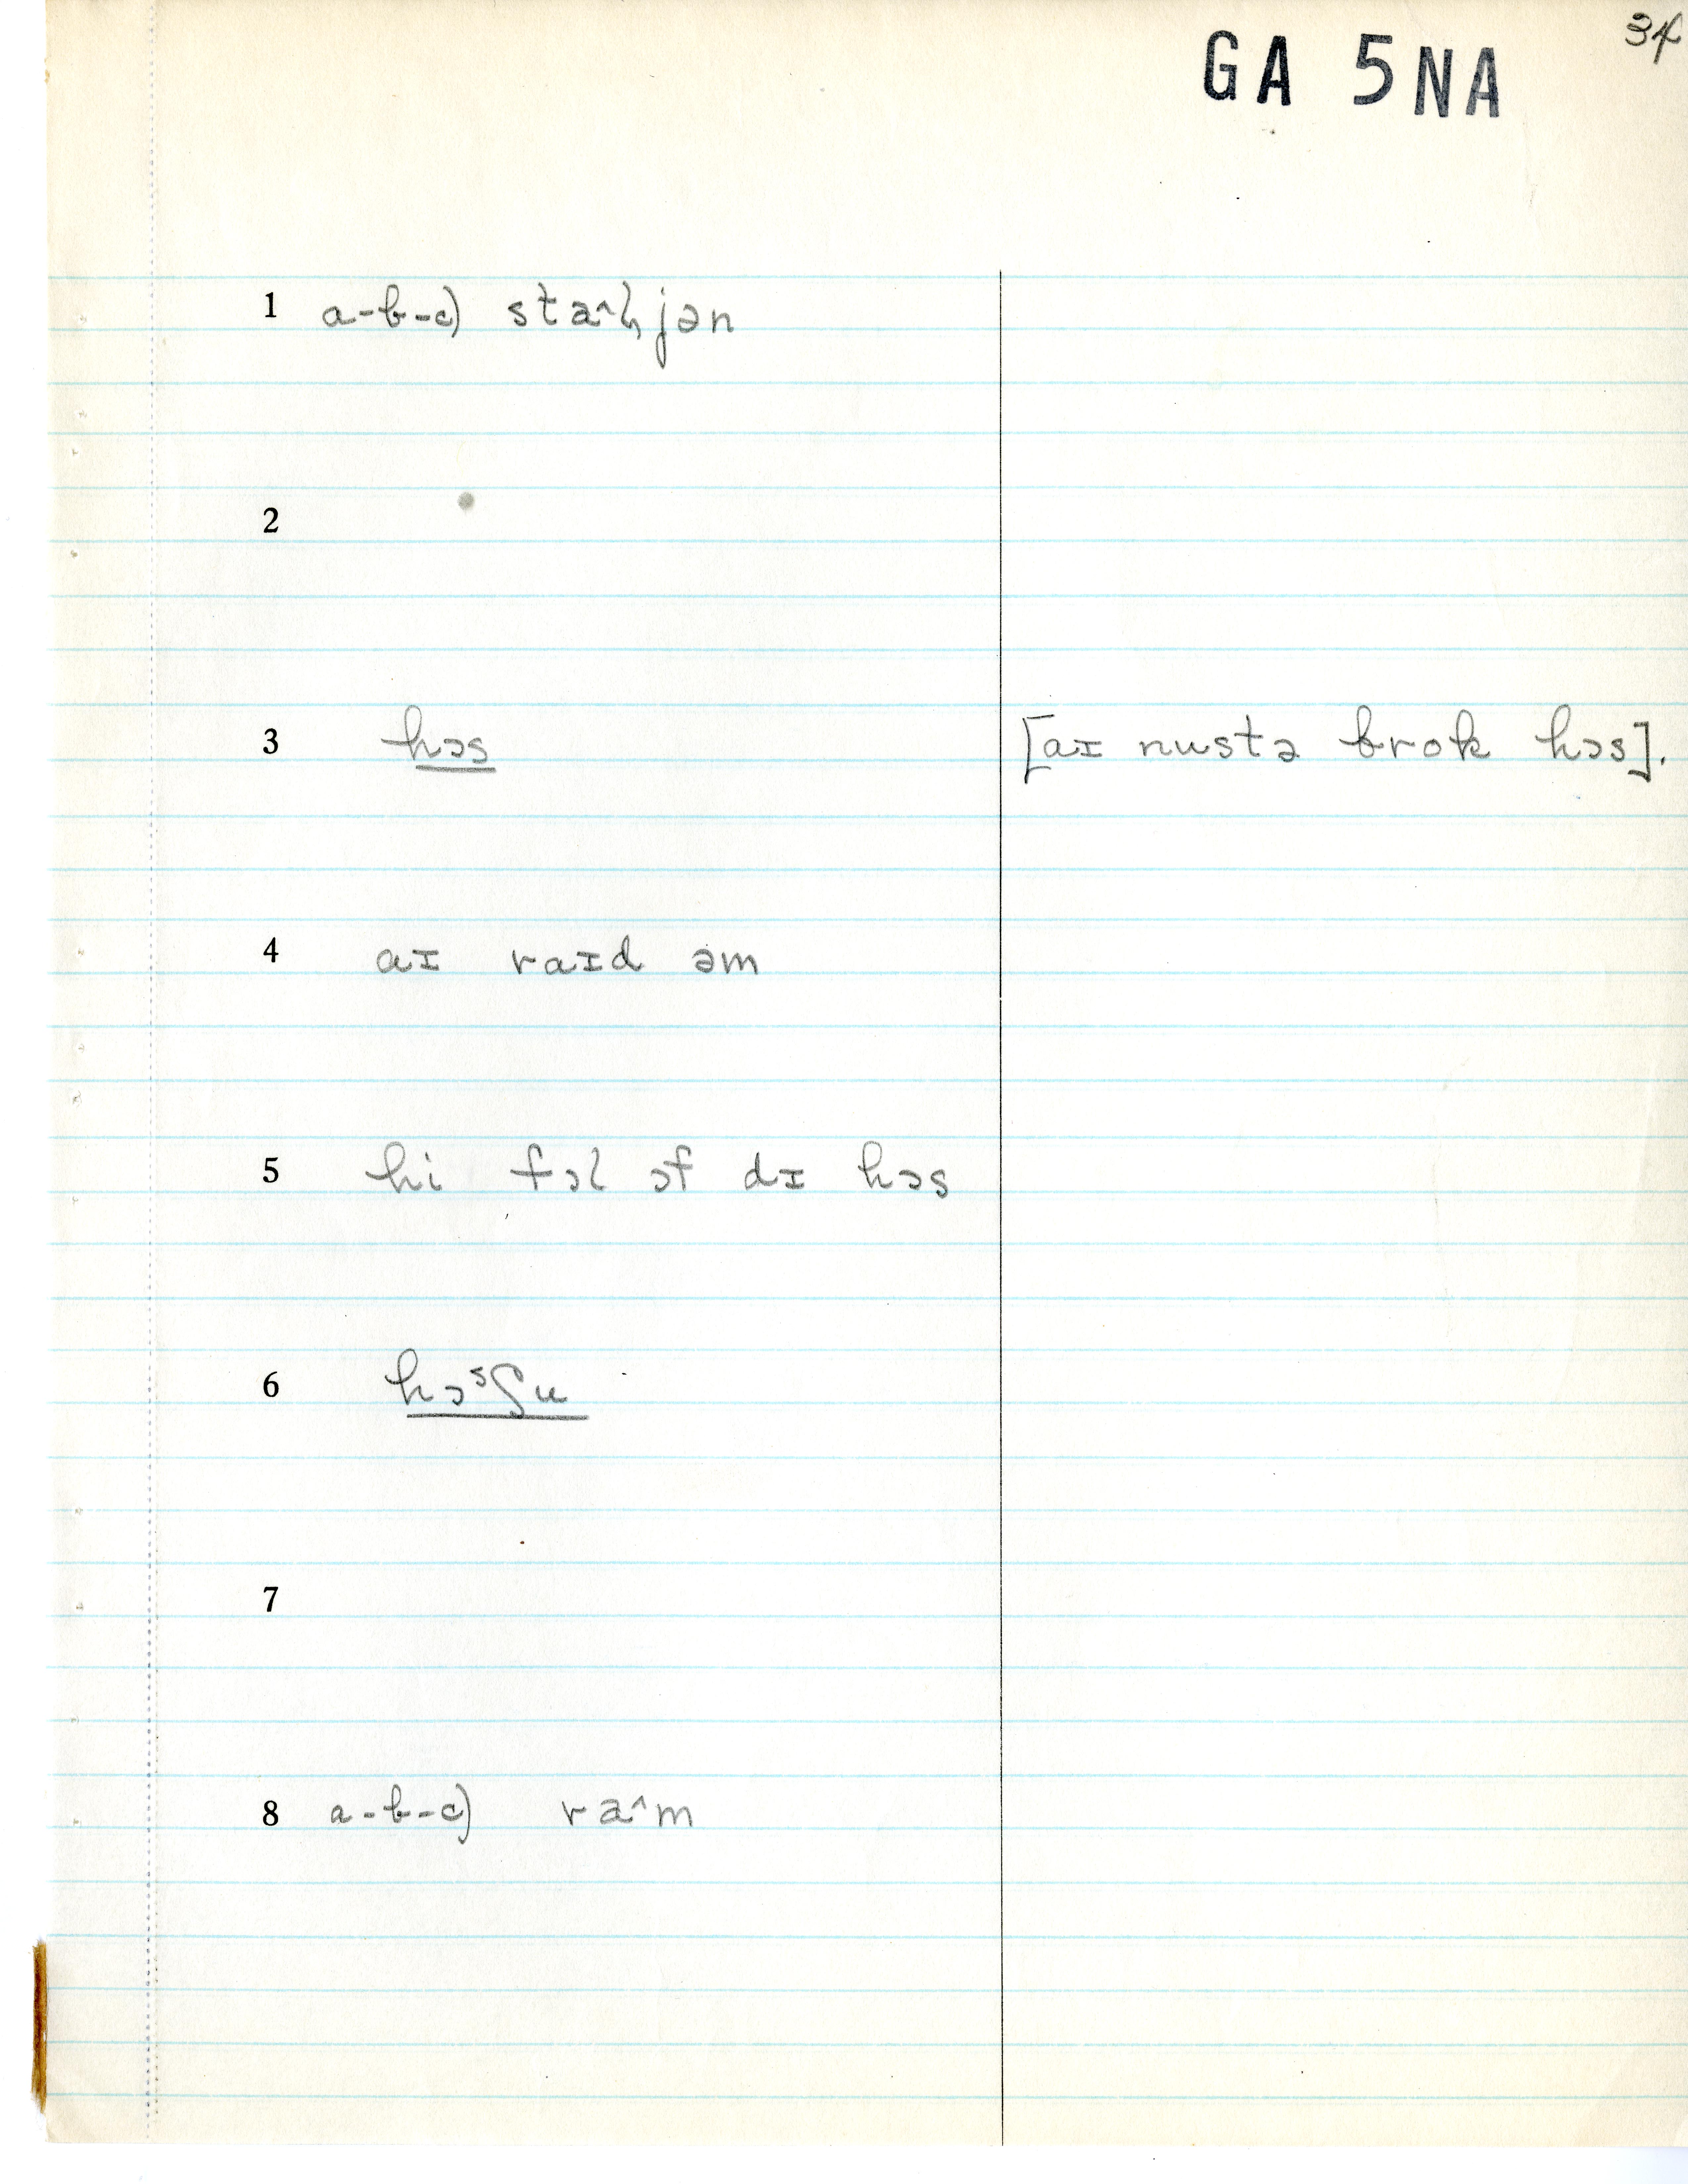 34
GA 5NA
1 a-b-c) stа^l̡jən
2
3 hɔs [aɪ nustə brok hɔs].
4 aɪ raɪd əm
5 hi fɔl ɔf dɪ hɔs
6 hɔˢʃu
7
8 a-b-c) ra^m